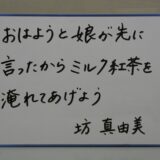 おはようと娘が先に
言ったからミルク紅茶を
淹れてあげよう
坊 真由美